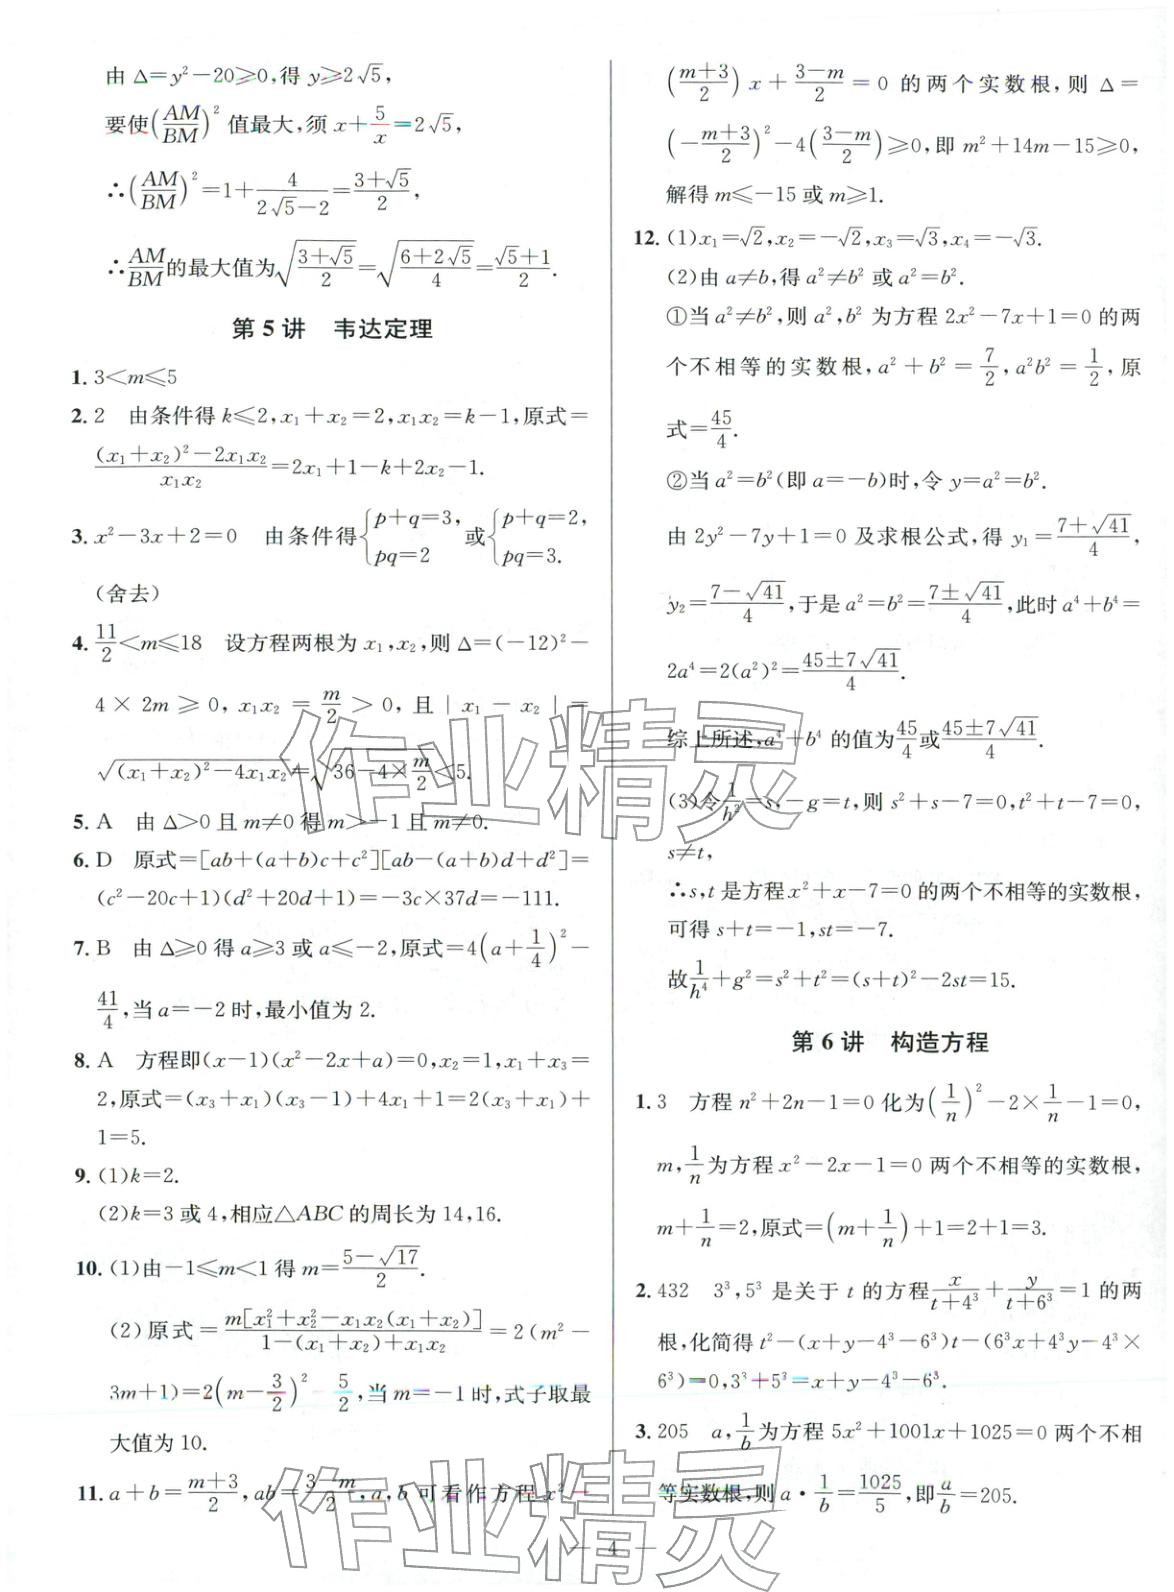 由 Δ=y²-20≥0,得 y≥2√5,
要使(AM/BM)² 值最大,须 x+5/x=2√5,
∴(AM/BM)²=1+4/(2√5-2)=(3+√5)/2,
∴AM/BM的最大值为√((3+√5)/2)=√((6+2√5)/4)=(√5+1)/2.
第 5 讲　韦达定理
1. 3<m≤5
2. 2　由条件得 k≤2,x₁+x₂=2,x₁x₂=k-1,原式=
((x₁+x₂)²-2x₁x₂)/(x₁x₂)=2x₁+1-k+2x₂-1.
3. x²-3x+2=0　由条件得{p+q=3, pq=2 或{p+q=2, pq=3.
(舍去)
4. 11/2<m≤18　设方程两根为 x₁,x₂,则 Δ=(-12)²-
4×2m≥0, x₁x₂=m/2>0,且|x₁-x₂|=
√((x₁+x₂)²-4x₁x₂)=√(36-4×m/2)<5.
5. A　由 Δ>0 且 m≠0 得 m>-1 且 m≠0.
6. D　原式=[ab+(a+b)c+c²][ab-(a+b)d+d²]=
(c²-20c+1)(d²+20d+1)=-3c×37d=-111.
7. B　由 Δ≥0 得 a≥3 或 a≤-2,原式=4(a+1/4)²-
41/4,当 a=-2 时,最小值为 2.
8. A　方程即(x-1)(x²-2x+a)=0,x₂=1,x₁+x₃=
2,原式=(x₃+x₁)(x₃-1)+4x₁+1=2(x₃+x₁)+
1=5.
9. (1)k=2.
(2)k=3 或 4,相应△ABC 的周长为 14,16.
10. (1)由-1≤m<1 得 m=(5-√17)/2.
(2)原式=m[x₁²+x₂²-x₁x₂(x₁+x₂)]/(1-(x₁+x₂)+x₁x₂)=2(m²-
3m+1)=2(m-3/2)²-5/2,当 m=-1 时,式子取最
大值为 10.
11. a+b=(m+3)/2,ab=(3-m)/2,a,b 可看作方程 x²-
((m+3)/2)x+(3-m)/2=0 的两个实数根,则 Δ=
(-(m+3)/2)²-4((3-m)/2)≥0,即 m²+14m-15≥0,
解得 m≤-15 或 m≥1.
12. (1)x₁=√2,x₂=-√2,x₃=√3,x₄=-√3.
(2)由 a≠b,得 a²≠b² 或 a²=b².
①当 a²≠b²,则 a²,b² 为方程 2x²-7x+1=0 的两
个不相等的实数根,a²+b²=7/2,a²b²=1/2,原
式=45/4.
②当 a²=b²(即 a=-b)时,令 y=a²=b².
由 2y²-7y+1=0 及求根公式,得 y₁=(7+√41)/4,
y₂=(7-√41)/4,于是 a²=b²=(7±√41)/4,此时 a⁴+b⁴=
2a⁴=2(a²)²=(45±7√41)/4.
综上所述,a⁴+b⁴ 的值为45/4或(45±7√41)/4.
(3)令1/h²=s,-g=t,则 s²+s-7=0,t²+t-7=0,
s≠t,
∴s,t 是方程 x²+x-7=0 的两个不相等的实数根,
可得 s+t=-1,st=-7.
故1/h⁴+g²=s²+t²=(s+t)²-2st=15.
第 6 讲　构造方程
1. 3　方程 n²+2n-1=0 化为(1/n)²-2×1/n-1=0,
m,1/n为方程 x²-2x-1=0 两个不相等的实数根,
m+1/n=2,原式=(m+1/n)+1=2+1=3.
2. 432　3³,5³ 是关于 t 的方程x/(t+4³)+y/(t+6³)=1 的两
根,化简得 t²-(x+y-4³-6³)t-(6³x+4³y-4³×
6³)=0,3³+5³=x+y-4³-6³.
3. 205　a,1/b为方程 5x²+1001x+1025=0 两个不相
等实数根,则 a·1/b=1025/5,即a/b=205.
— 4 —
作业精灵
作业精灵